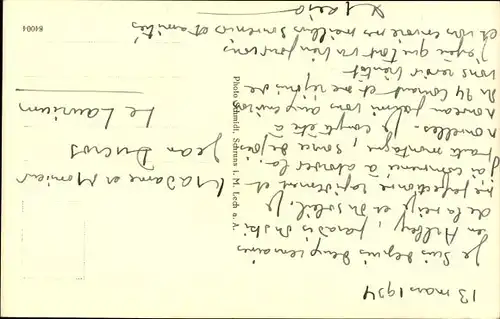 13 mars 1934
Je suis depuis deux semaines
en Arlberg, paradis du ski
de la neige et du soleil. Je
me perfectionne rapidement et
j'ai commencé à aborder la
haute montagne, source de joies
nouvelles. Je compte être à
nouveau parmi vous aux environs
du 24 courant et me réjouis de
vous revoir bientôt
J'espère que tout va bien pour vous
et vous envoie mes meilleurs souvenirs et amitiés
Madame et Monsieur
Jean Ducros
Le Laurium
Photo Schmidt, Schruns i. M. Lech a. A.
84004